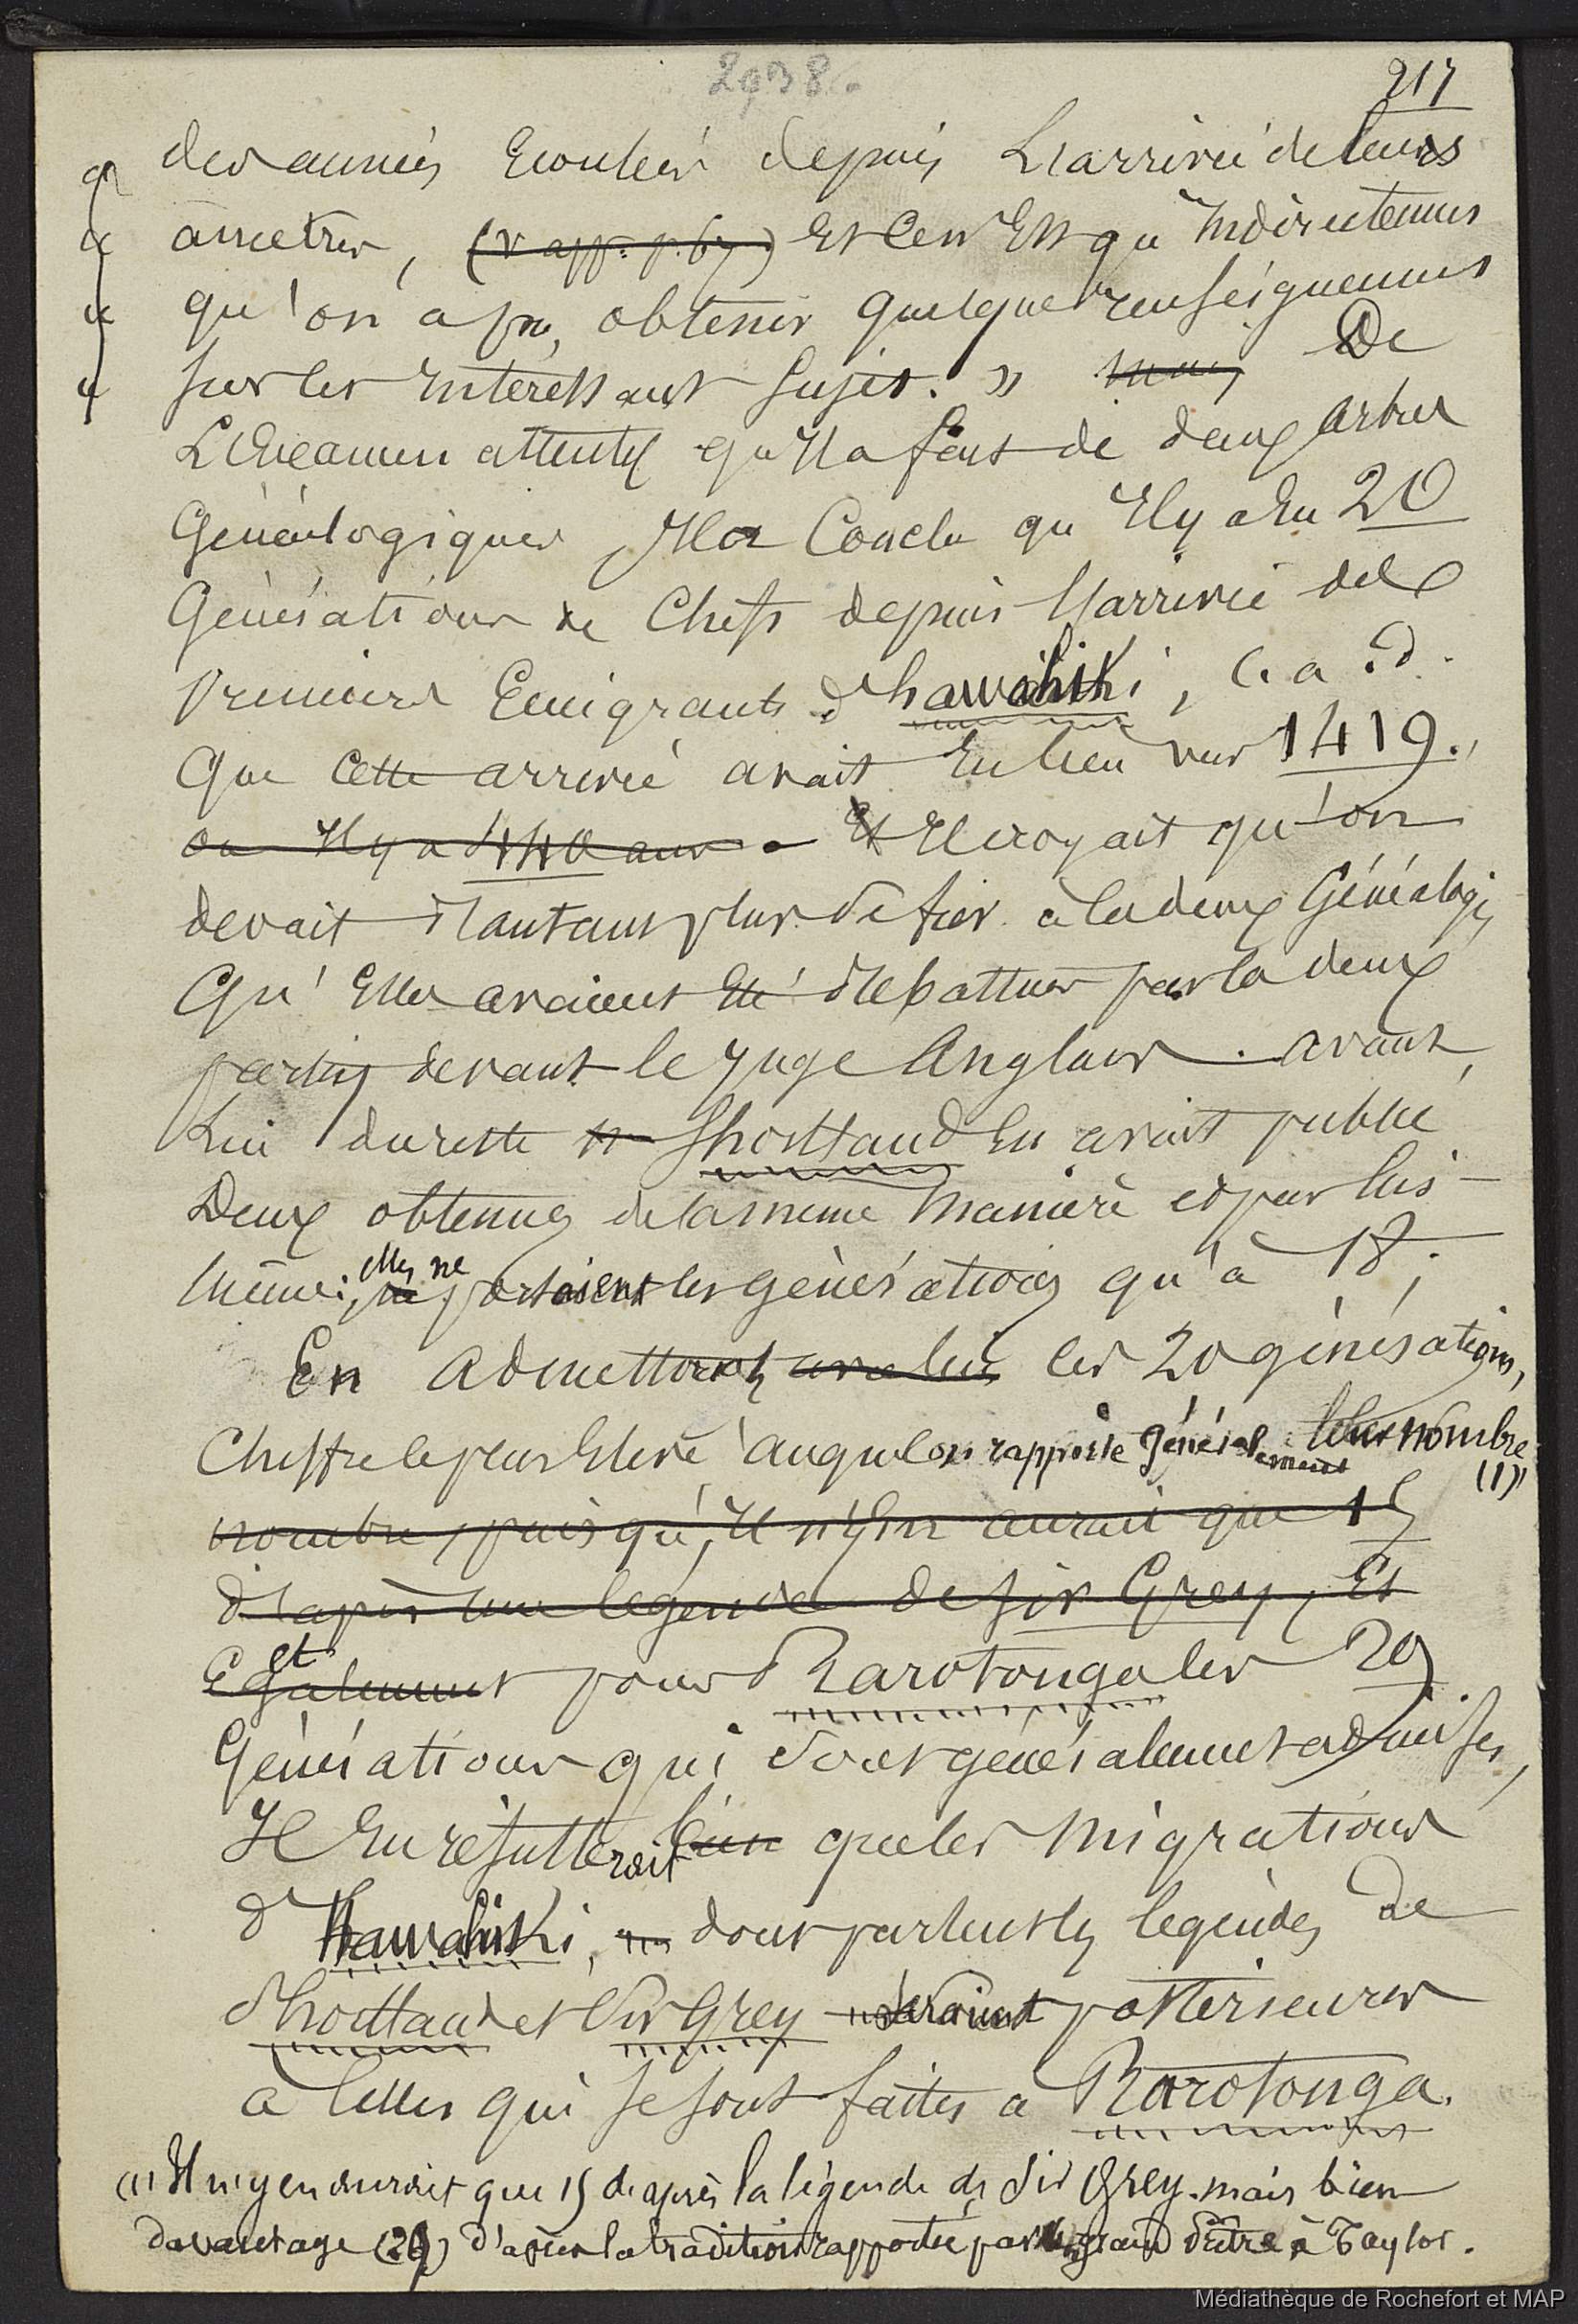 2938.
217
des années Ecoulées depuis L'arrivée de leurs
« ancêtres, (v. app. p. 67) Et Ce n'Est qu'Indirectement
« qu'on a pu, obtenir quelques renseignements
« sur les intéressant sujet. » De
L'Examen attentif qu'Il a fait de deux arbres
Généalogiques, Il a Conclu qu'Il y a Eu 20
Générations de Chefs depuis L'arrivée des
Premiers Emigrants d'hawahiki, C. a. d.
Que Cette arrivée avait Eu lieu vers 1419.,
ou Il y a 440 ans. Et Il croyait qu'on
devait d'autant plus se fier à les deux Généalogies
Qu'Elles avaient Eté débattues par les deux
parties devant le Juge Anglais. avant,
Lui du reste Shortland En avait publié
Deux obtenues de la même manière et par lui-
même; elles ne portaient les générations qu'à 18;
En admettant avec lui les 20 générations,
Chiffre le plus Elevé auquel on rapporte généralement leur nombre (1)
nombre, puisqu'Il n'y En aurait que 15
d'après une légende de Sir Grey, Et
Egalement et pour Rarotonga les 29
Générations qui sont généralement admises,
Il En résulterait bien que les Migrations
d'Hawahiki, dont parlent les légendes de
Shortland et Sir Grey seraient postérieures
à Celles qui se sont faites à Rarotonga.
(1) Il n'y en aurait que 15 d'après la légende de Sir Grey. mais bien
davantage (26) d'après la tradition rapportée par le grand prêtre à Taylor.
Médiathèque de Rochefort et MAP